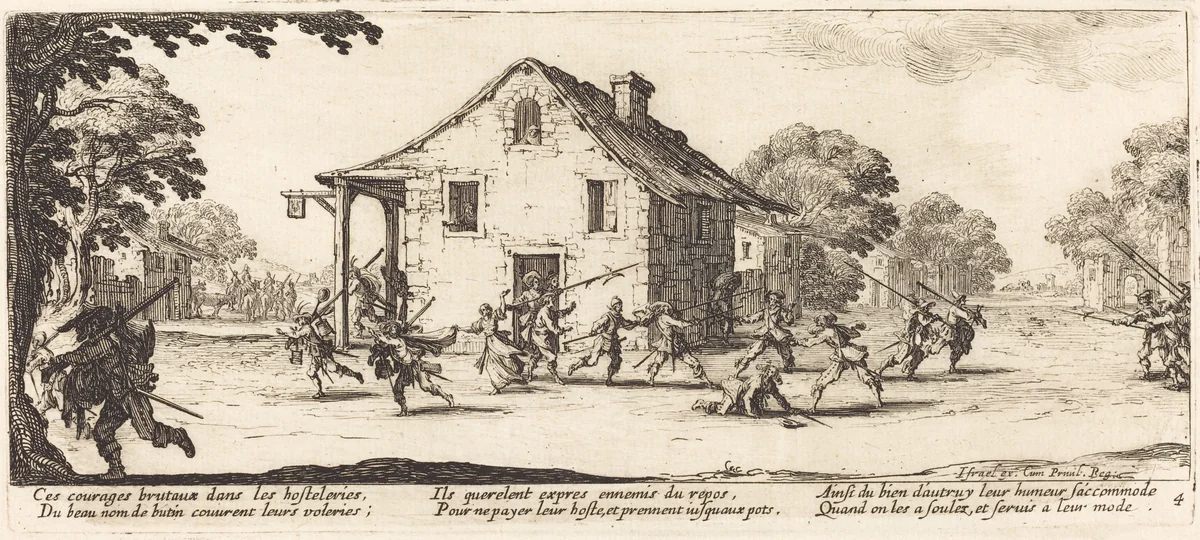 Israel ex. Cum Privil. Reg.
Ces courages brutaux dans les hosteleries,
Du beau nom de butin couurent leurs voleries ;
Ils querelent expres ennemis du repos,
Pour ne payer leur hoste, et prennent iusquaux pots.
Ainsi du bien dautruy leur humeur saccommode
Quand on les a soulez, et seruis a leur mode .
4